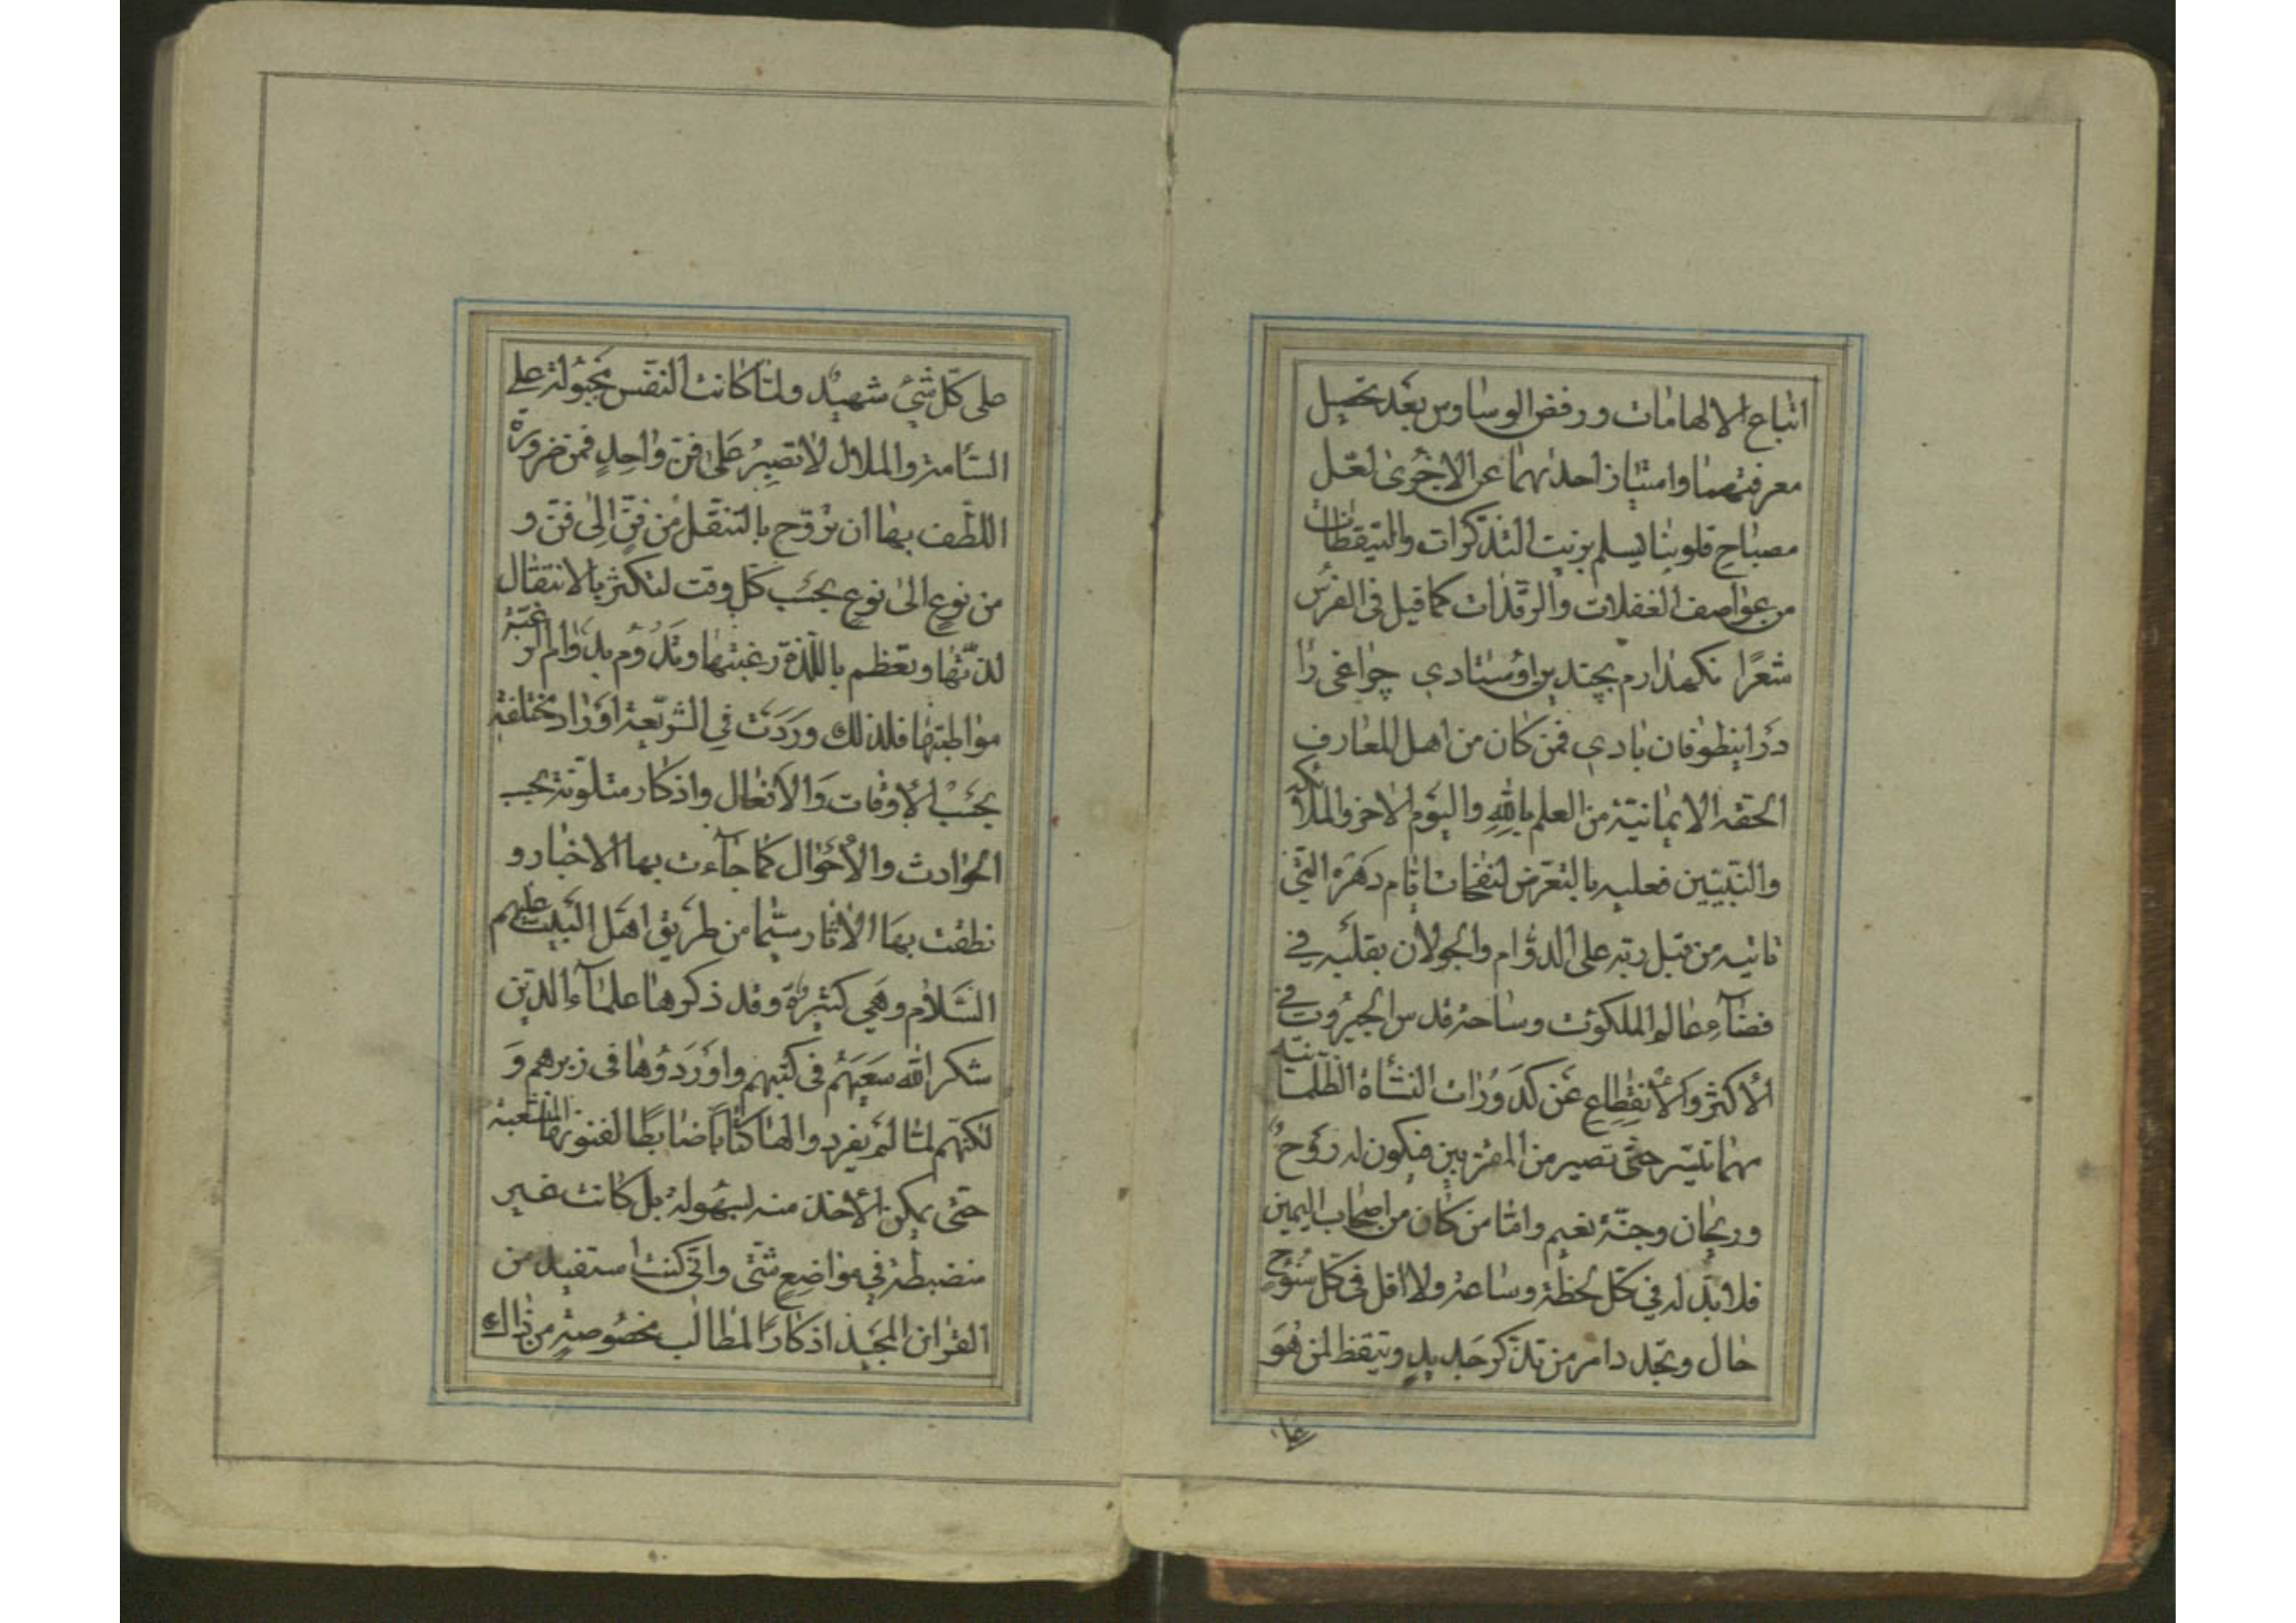 اتباع الالهامات ورفض الوساوس بعد تحصيل
معرفتهما وامتياز احدٰهما عن الاخرىٰ لعل
مصباح قلوبنا يسلم بزيت التذكرات والتيقظات
من عواصف الغفلات والرقدات كما قيل فى الفرس
شعرًا نكهدارم بچندين اوستادي چراغى را
در اينطوفان بادي فمن كان من اهل المعارف
الحقه الايمانيّة من العلم بالله واليوم الاخر والملائكه
والنبيين فعليه بالتعرض لنفحات ايّام دهره الّتي
تاتيه من قبل ربّه على الدوام والجولان بقلبه في
فضآء عالم الملكوت وساحة قدس الجبروت في
الاكثر والانقطاع عن كدورات النشأة الظلمانيّه
مهما تيسّر حتّى تصير من المقرّبين فيكون له روح
وريحان وجنّة نعيم وامّا من كان من اصحاب اليمين
فلا بدّ له في كلّ لحظة وساعة ولا اقل فى كلّ سنوح
حال وتجدد امر من تذكر جديد وتيقظ لمن هو
على
على كلّ شيء شهيد ولمّا كانت النفس مجبولة على
السّامة والملال لا تصبر على فنّ واحد فمن ضرورة
اللطف بها ان تروّح بالتنقل من فنّ الى فنّ و
من نوع الىٰ نوع بحسب كلّ وقت لتكثر بالانتقال
لذّتها وتعظم باللّذة رغبتها وتدوم بدوام الرغبة
مواظبتها فلذلك وردت في الشريعة اوراد مختلفة
بحسب الاوقات والافعال واذكار متلوّنة بحسب
الحوادث والاحوال كما جآءت بها الاخبار و
نطقت بها الاثار سيّما من طريق اهل البيت عليهم
السّلام وهي كثيرة وقد ذكرها علمآء الدين
شكر الله سعيهم فى كتبهم واوردوها فى زبرهم و
لكنّهم لمّا لم يفردوا لها كتابًا ضابطًا لفنونها المتشعبة
حتّى يمكن الاخذ منه بسهولة بل كانت غير
منضبطة في مواضع شتّى وانّى كنت استفيد من
القران المجيد اذكارًا لمطالب مخصوصة من ذالك